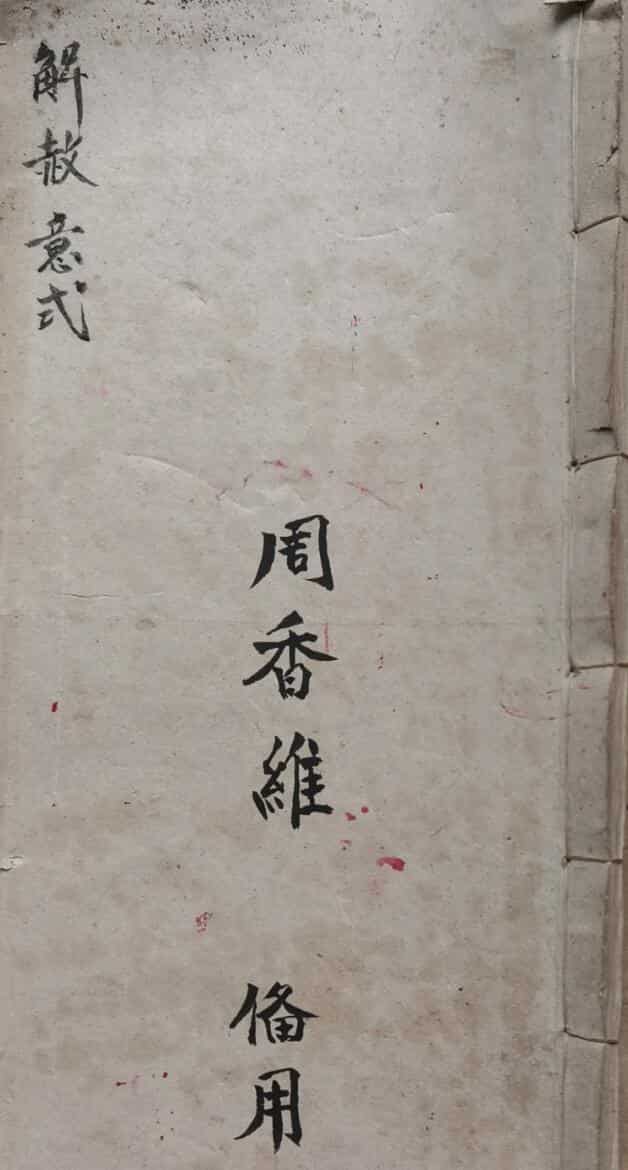 周香維 俻用
解赦意式